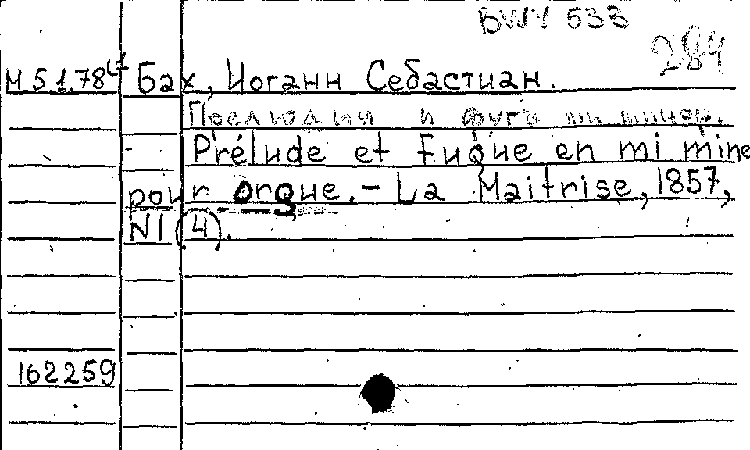 BWV 533
284
М 51.78 Бах, Иоганн Себастиан.
Прелюдии и фуга ми минор.
Prélude et Fuque en mi mine
pour orgue. – La Maitrise, 1857,
N1 (4).
162259